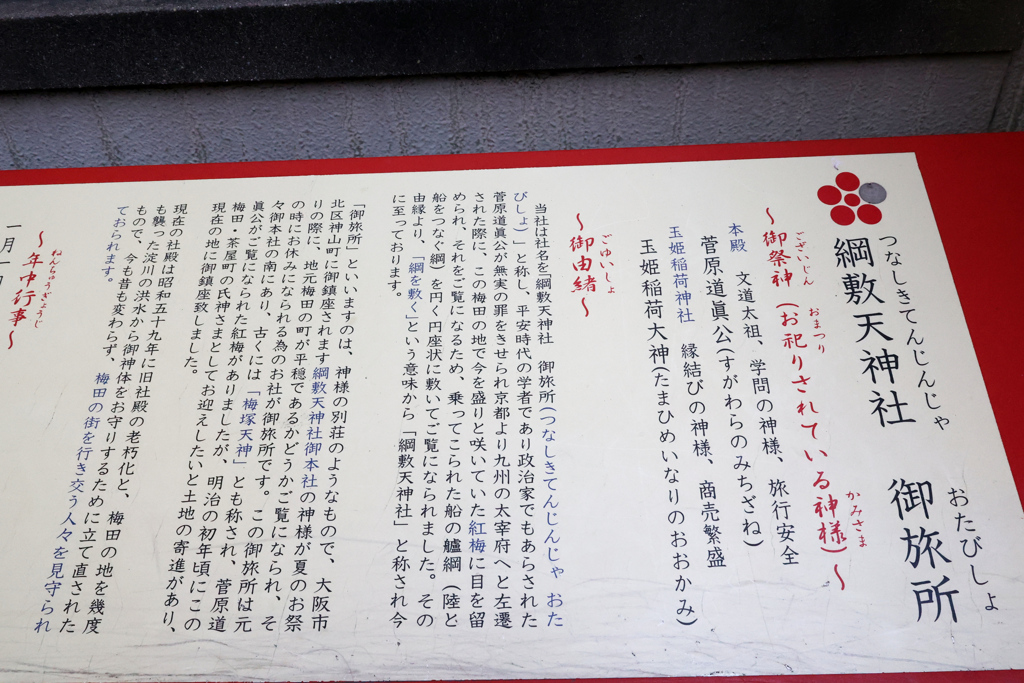 つなしきてんじんしゃ おたびしょ
綱敷天神社 御旅所
ごさいじん おまつり かみさま
～御祭神(お祀りされている神様)～
本殿 文道太祖、学問の神様、旅行安全
菅原道眞公(すがわらのみちざね)
玉姫稲荷神社 縁結びの神様、商売繁盛
玉姫稲荷大神(たまひめいなりのおおかみ)
ごゆいしょ
～御由緒～
当社は社名を「綱敷天神社 御旅所(つなしきてんじんじゃ おた
びしょ)」と称し、平安時代の学者であり政治家でもあらされた
菅原道眞公が無実の罪をきせられ京都より九州の太宰府へと左遷
された際に、この梅田の地で今を盛りと咲いていた紅梅に目を留
められ、それをご覧になるため、乗ってこられた船の艫綱(陸と
船をつなぐ綱)を円く円座状に敷いてご覧になられました。その
由縁より、「綱を敷く」という意味から「綱敷天神社」と称され今
に至っております。
「御旅所」といいますのは、神様の別荘のようなもので、大阪市
北区神山町に御鎮座されます綱敷天神社御本社の神様が夏のお祭
りの際に、地元梅田の町が平穏であるかどうかご覧になられ、そ
の時にお休みになられる為のお社が御旅所です。この御旅所は元
々御本社の南にあり、古くには「梅塚天神」とも称され、菅原道
眞公がご覧になられた紅梅がありましたが、明治の初年頃にこの
梅田・茶屋町の氏神さまとしてお迎えしたいと土地の寄進があり、
現在の地に御鎮座致しました。
現在の社殿は昭和五十九年に旧社殿の老朽化と、梅田の地を幾度
も襲った淀川の洪水から御神体をお守りするために立て直された
もので、今も昔も変わらず、梅田の街を行き交う人々を見守られ
ておられます。
ねんちゅうぎょうじ
～年中行事～
一月一日